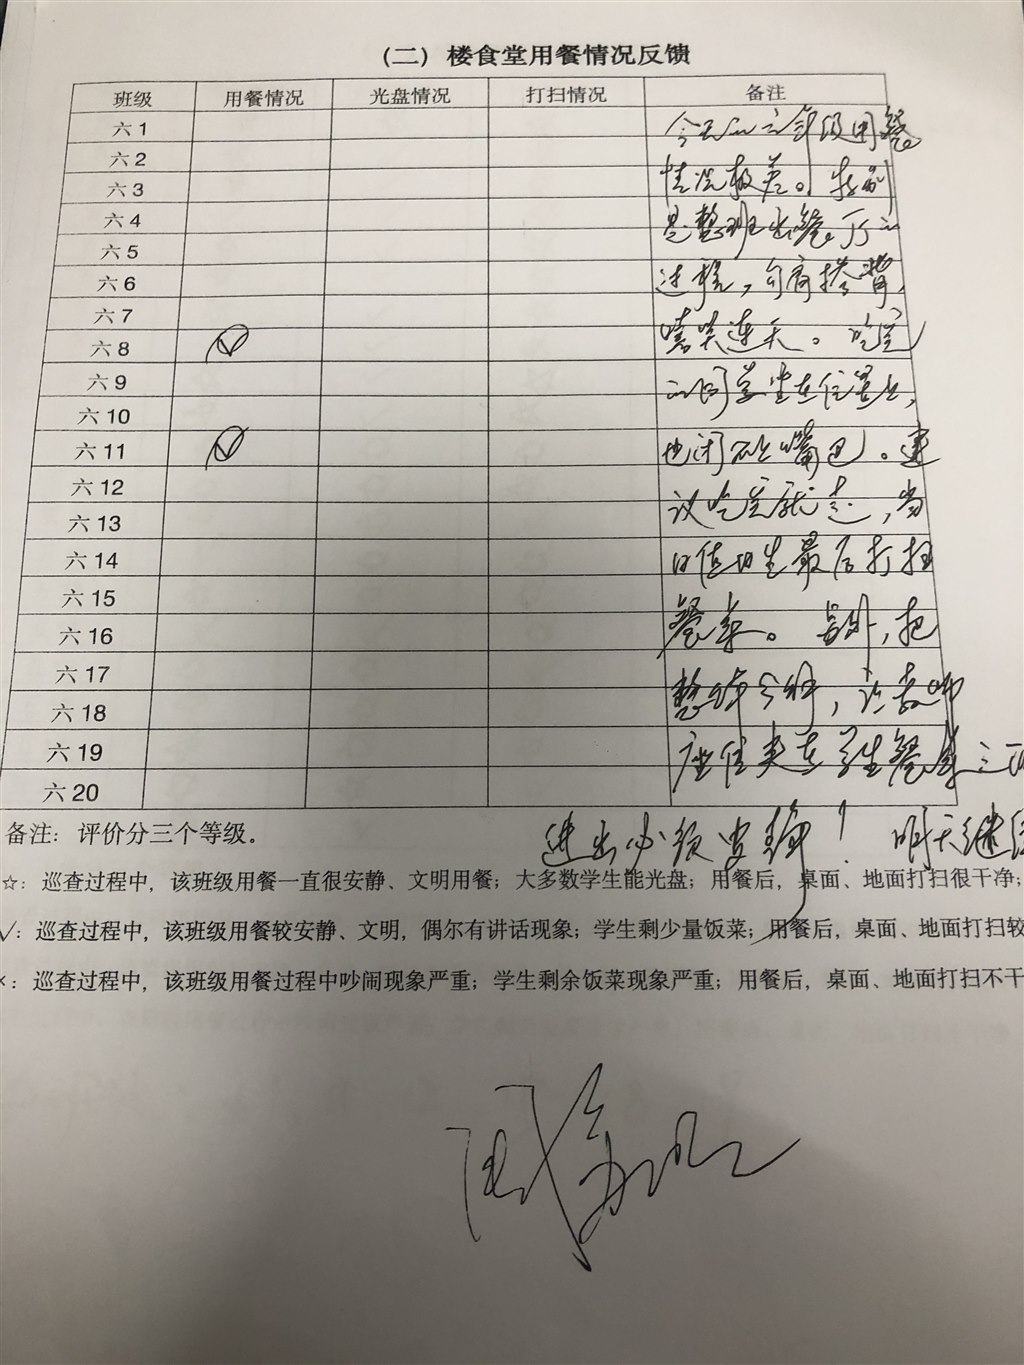 （二）楼食堂用餐情况反馈
班级 用餐情况 光盘情况 打扫情况 备注
六 1
六 2
六 3
六 4
六 5
六 6
六 7
六 8
六 9
六 10
六 11
六 12
六 13
六 14
六 15
六 16
六 17
六 18
六 19
六 20
今天的六年级用餐
情况极差。特别
是整班出餐厅的
过程，勾肩搭背，
嘻笑连天。吃完
的同学坐在位置上，
也闭不上嘴巴。建
议吃完就走，当
日值日生最后打扫
餐桌。另外，把
整 ，让教师
座位夹在学生餐桌之
进出必须安静！明天继
备注：评价分三个等级。
☆：巡查过程中，该班级用餐一直很安静、文明用餐；大多数学生能光盘；用餐后，桌面、地面打扫很干净；
√：巡查过程中，该班级用餐较安静、文明，偶尔有讲话现象；学生剩少量饭菜；用餐后，桌面、地面打扫较
×：巡查过程中，该班级用餐过程中吵闹现象严重；学生剩余饭菜现象严重；用餐后，桌面、地面打扫不干